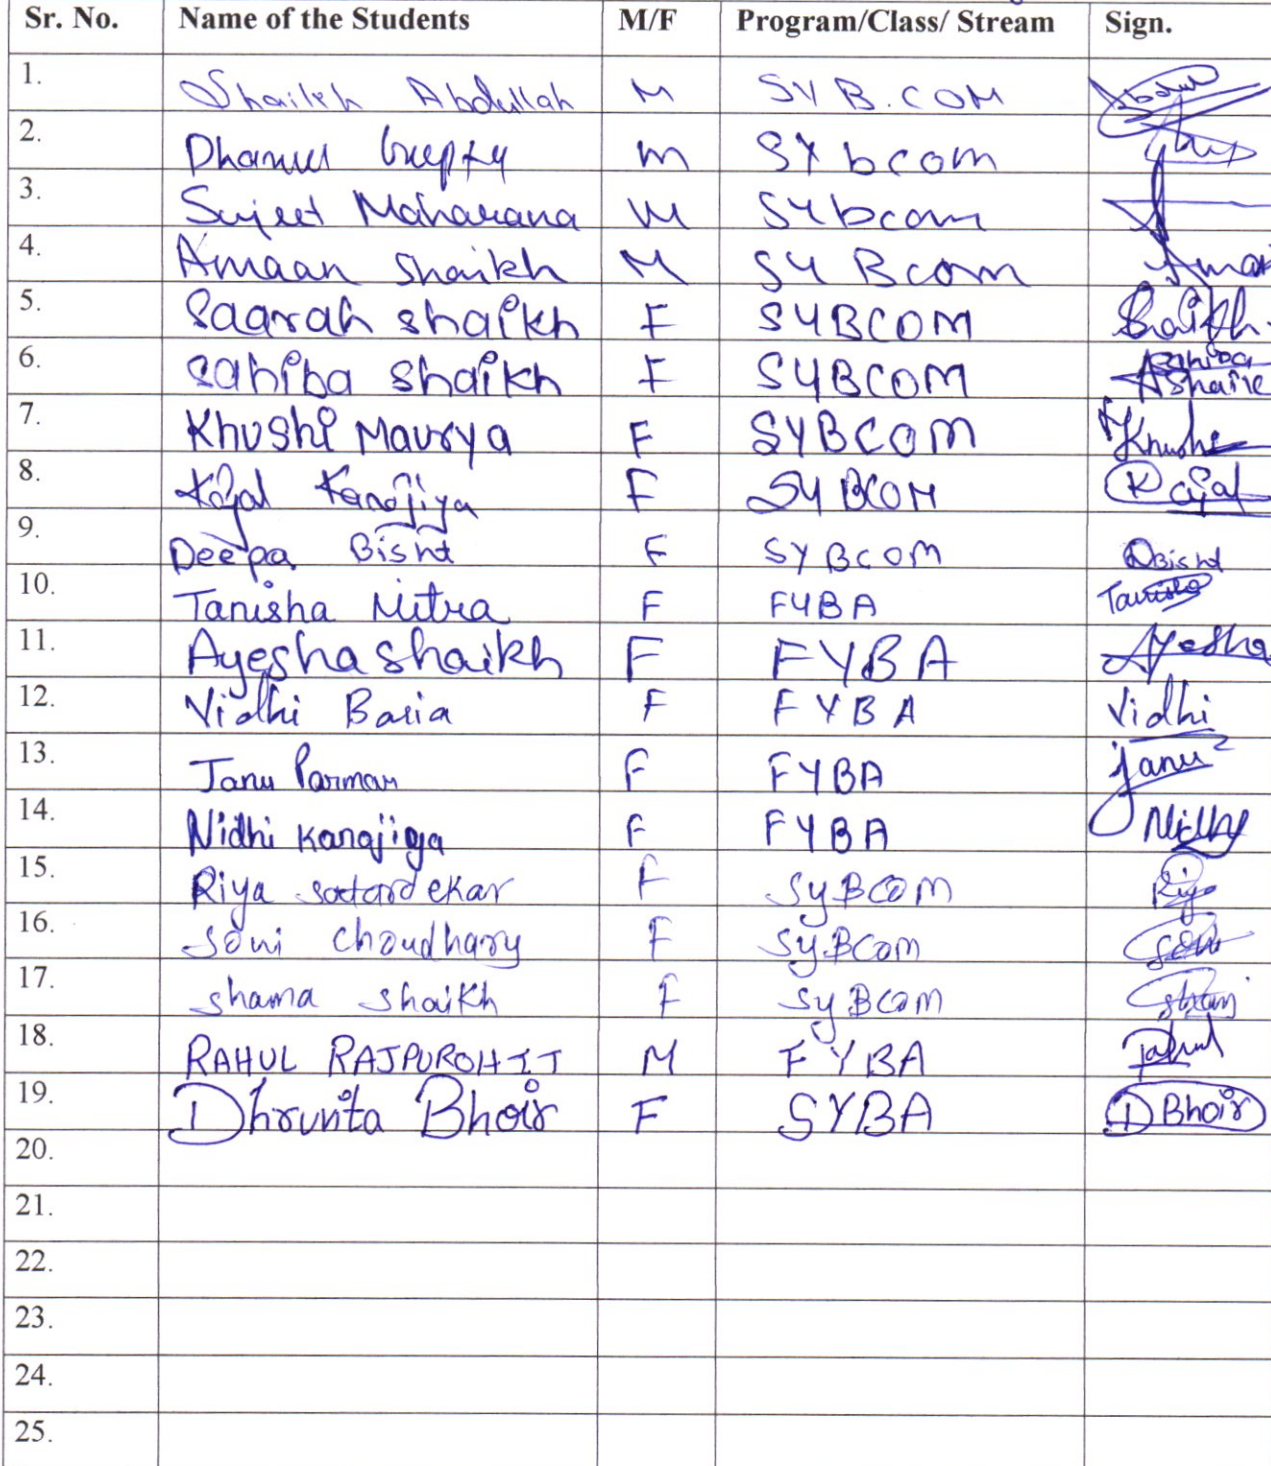 Sr. No. Name of the Students M/F Program/Class/ Stream Sign.
1. Shaikh Abdullah M SYB.COM
2. m SY bcom
3. Sujeet Maharana M SYbcom
4. Amaan Shaikh M SY Bcom Amaan
5. Saarah shaikh F SYBCOM Shaikh
6. Sahiba shaikh F SYBCOM Sahiba Shaikh
7. Khushi Maurya F SYBCOM Khushi
8. Kajal Kanojiya F SYBCOM Kajal
9. Deepa Bisht F SYBCOM DBisht
10. Tanisha Mitra F FYBA Tanisha
11. Ayesha shaikh F FYBA Ayesha
12. Vidhi Baria F FYBA Vidhi
13. Janu Parmar F FYBA Janu
14. Nidhi Kanojiya F FYBA Nidhi
15. Riya satardekar F SyBCOM Riya
16. Soni Choudhary F SyBCom Soni
17. shama shaikh F SyBCom
18. RAHUL RAJPUROHIT M FYBA Rahul
19. Dhrunita Bhoir F SYBA D Bhoir
20.
21.
22.
23.
24.
25.